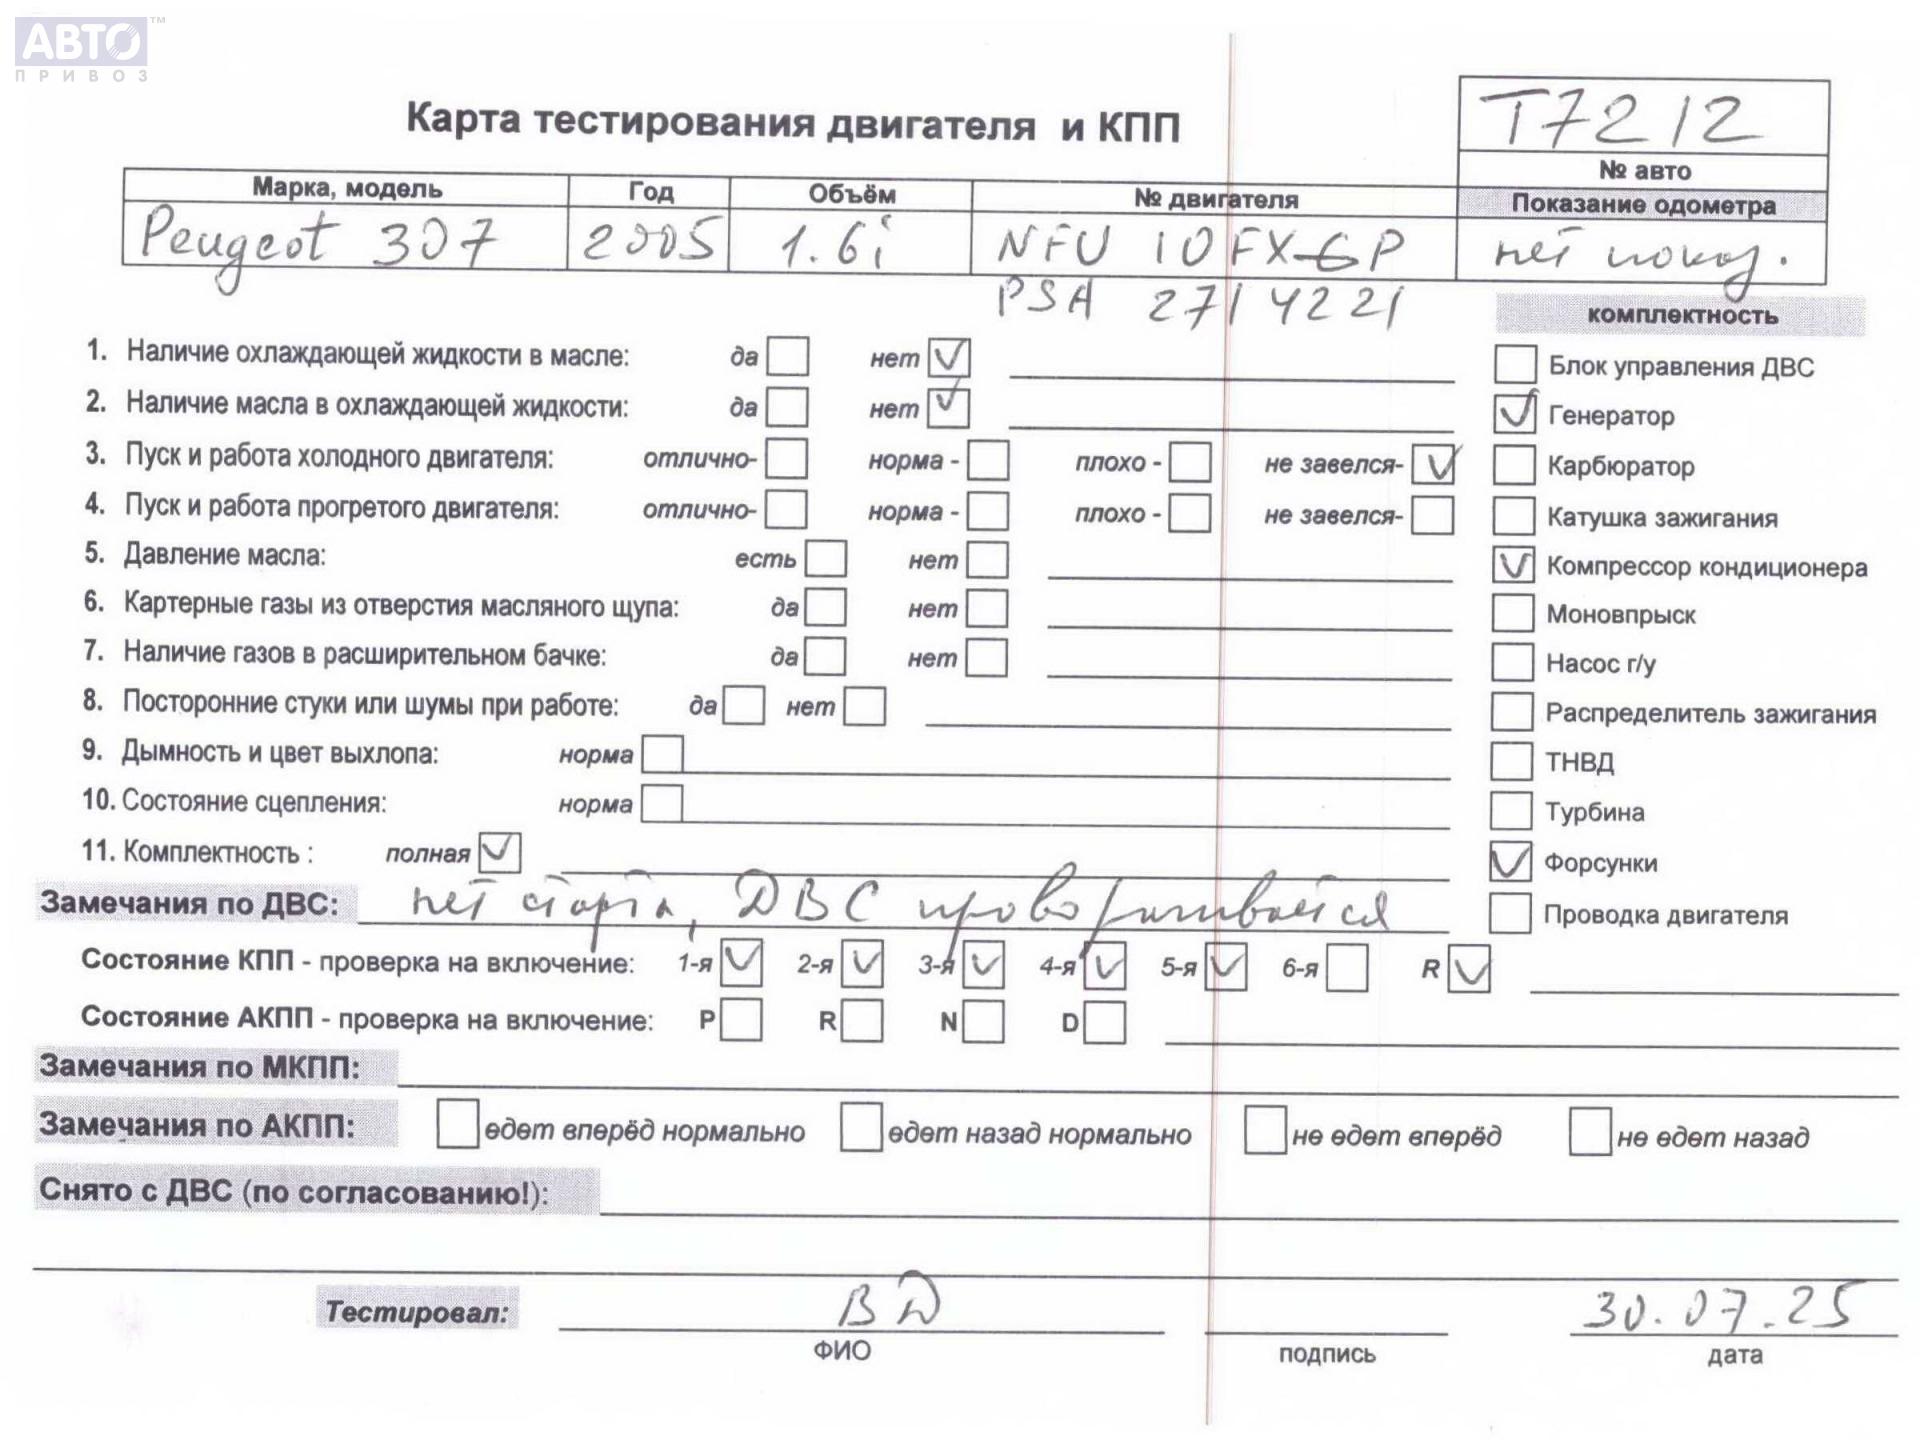 АВТО™
ПРИВОЗ
Карта тестирования двигателя и КПП
T7212
№ авто
Марка, модель Год Объём № двигателя Показание одометра
Peugeot 307 2005 1.6i NFU 10FX6P нет показ.
PSA 2714221
комплектность
1. Наличие охлаждающей жидкости в масле: да нет
Блок управления ДВС
2. Наличие масла в охлаждающей жидкости: да нет
Генератор
3. Пуск и работа холодного двигателя: отлично- норма - плохо - не завелся-
Карбюратор
4. Пуск и работа прогретого двигателя: отлично- норма - плохо - не завелся-
Катушка зажигания
5. Давление масла: есть нет
Компрессор кондиционера
6. Картерные газы из отверстия масляного щупа: да нет
Моновпрыск
7. Наличие газов в расширительном бачке: да нет
Насос г/у
8. Посторонние стуки или шумы при работе: да нет
Распределитель зажигания
9. Дымность и цвет выхлопа: норма
ТНВД
10. Состояние сцепления: норма
Турбина
11. Комплектность : полная
Форсунки
Замечания по ДВС: нет старта, ДВС проворачивается
Проводка двигателя
Состояние КПП - проверка на включение: 1-я 2-я 3-я 4-я 5-я 6-я R
Состояние АКПП - проверка на включение: P R N D
Замечания по МКПП:
Замечания по АКПП: едет вперёд нормально едет назад нормально не едет вперёд не едет назад
Снято с ДВС (по согласованию!):
Тестировал: ВД 30.07.25
ФИО подпись дата